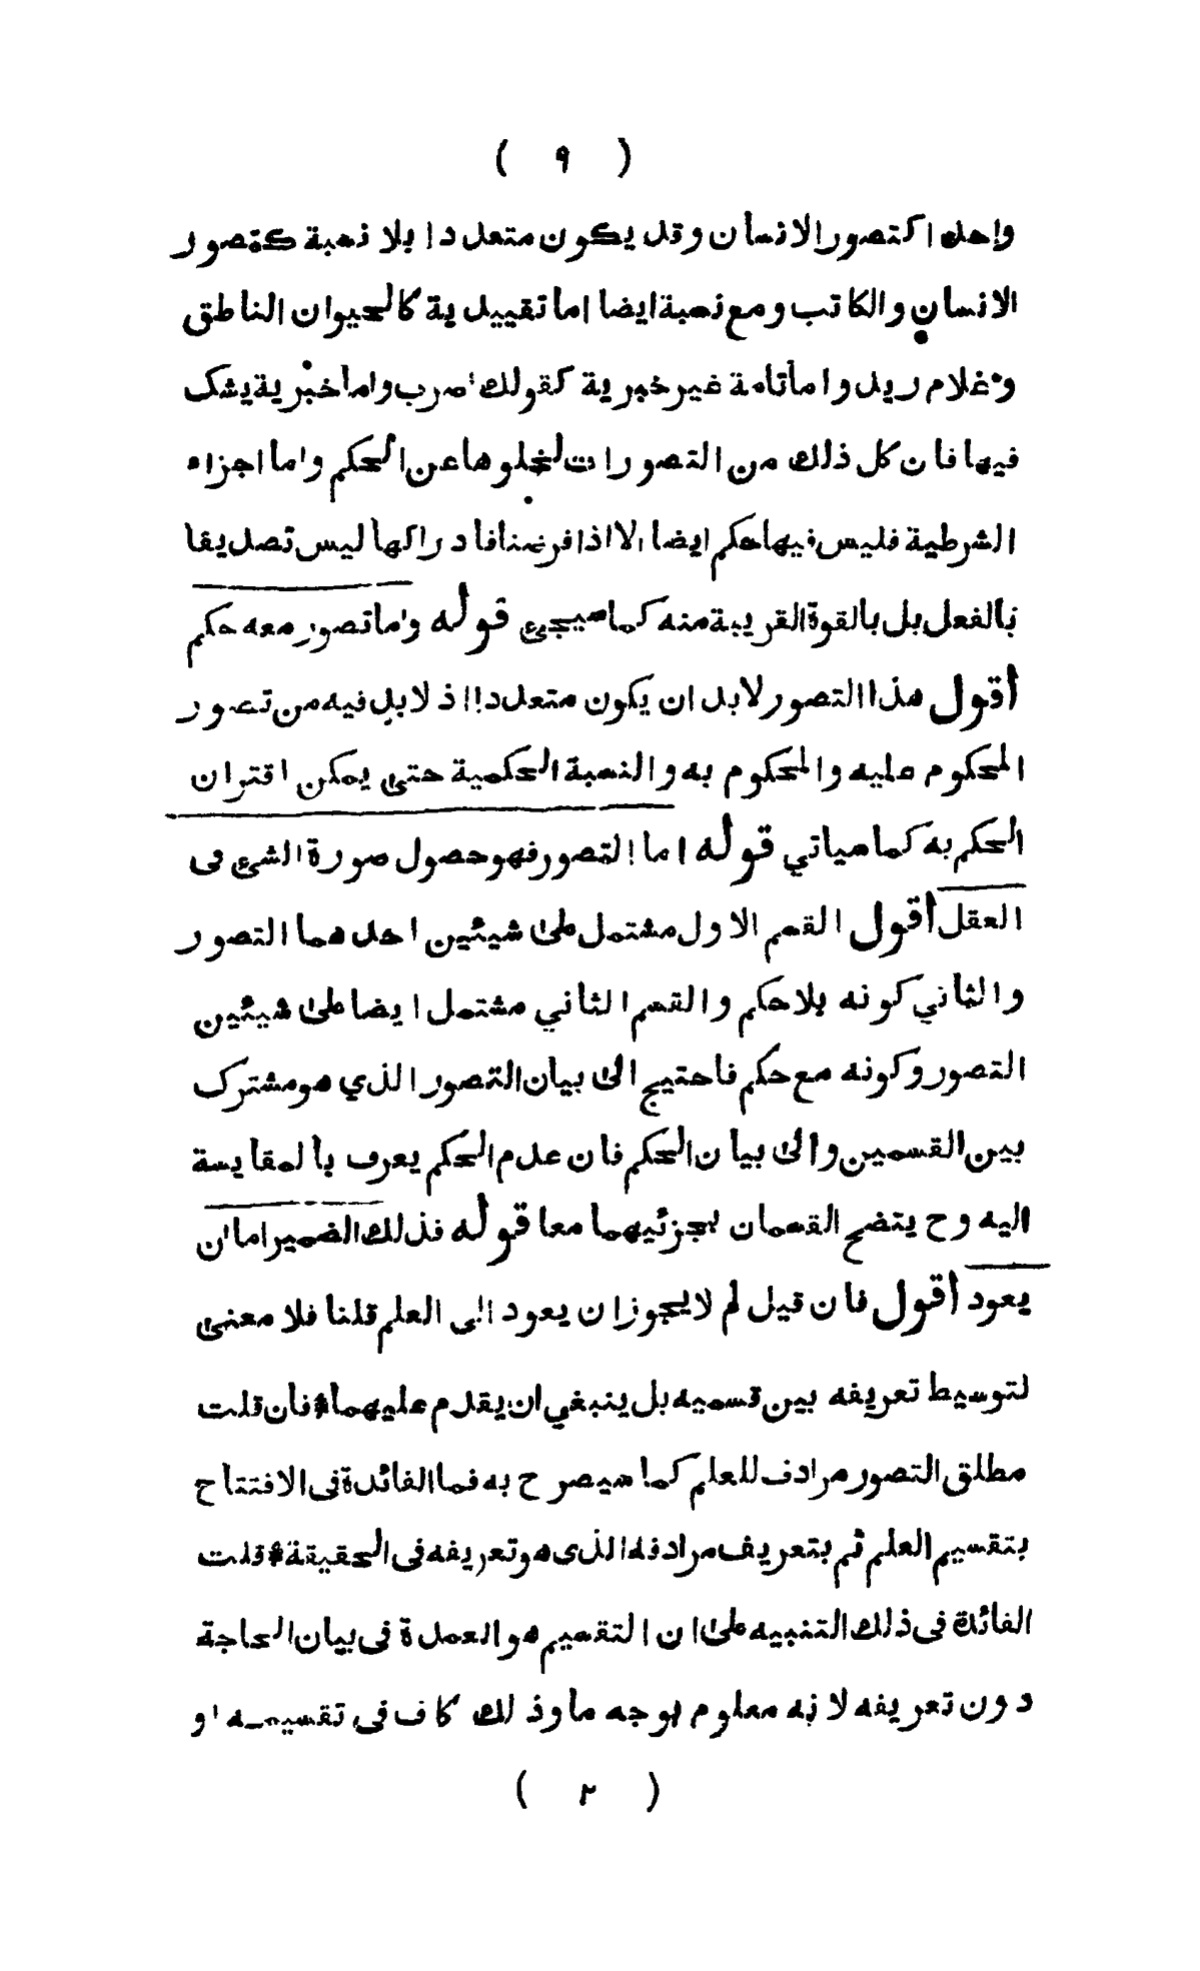 ( ٩ )
واحدا كتصور الانسان وقد يكون متعددا بلا نسبة كتصور
الانسان والكاتب ومع نسبة ايضا اما تقييدية كالحيوان الناطق
وغلام زيد واما تامة غير خبرية كقولك اضرب واما خبرية يشك
فيها فان كل ذلك من التصورات لخلوها عن الحكم واما اجزاء
الشرطية فليس فيها حكم ايضا الا اذا فرضنا فادراكها ليس تصديقا
بالفعل بل بالقوة القريبة منه كما سيجئ قوله واما تصور معه حكم
أقول هذا التصور لابد ان يكون متعددا اذ لابد فيه من تصور
المحكوم عليه والمحكوم به والنسبة الحكمية حتى يمكن اقتران
الحكم به كما سياتي قوله اما التصور فهو حصول صورة الشئ فى
العقل أقول القسم الاول مشتمل على شيئين احدهما التصور
والثاني كونه بلا حكم والقسم الثاني مشتمل ايضا على شيئين
التصور وكونه مع حكم فاحتيج الى بيان التصور الذي هو مشترك
بين القسمين والى بيان الحكم فان عدم الحكم يعرف بالمقايسة
اليه وح يتضح القسمان بجزئيهما معا قوله فذلك الضمير اما ان
يعود أقول فان قيل لم لا يجوز ان يعود الى العلم قلنا فلا معنى
لتوسيط تعريفه بين قسميه بل ينبغي ان يقدم عليهما * فان قلت
مطلق التصور مرادف للعلم كما سيصرح به فما الفائدة فى الافتتاح
بتقسيم العلم ثم بتعريف مرادفه الذى هو تعريفه فى الحقيقة * قلت
الفائدة فى ذلك التنبيه على ان التقسيم هو العمدة فى بيان الحاجة
دون تعريفه لانه معلوم بوجه ما وذلك كاف فى تقسيمه او
( ٢ )